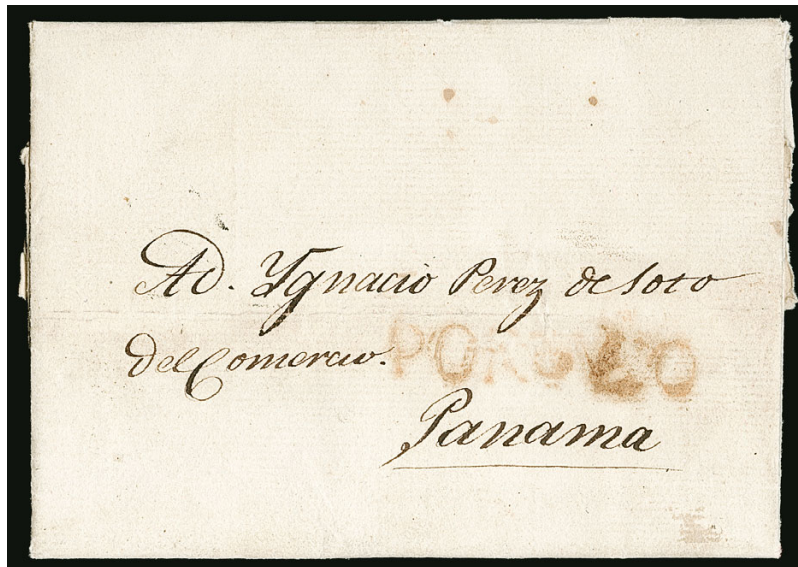 Ad. Ygnacio Perez de Soto
del Comercio.
Panama